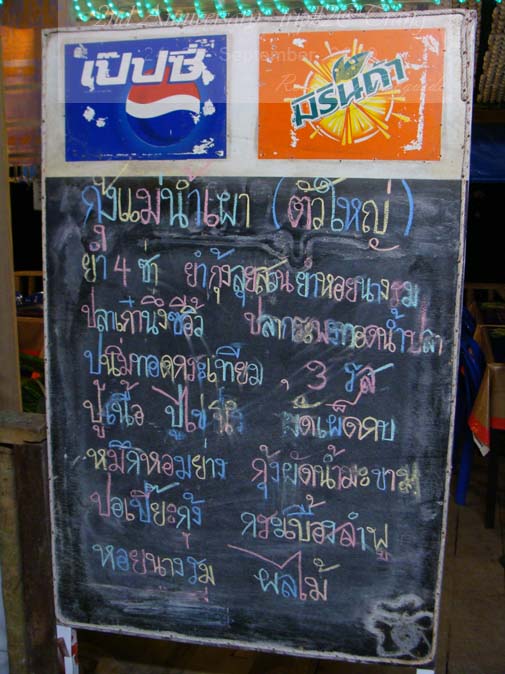 เป๊ปซี่ มิรินด้า
กุ้งแม่น้ำเผา (ตัวใหญ่)
ยำ 4 ซ่า ยำกุ้งลุยสวน ยำหอยนางรม
ปลาเก๋านึ่งซีอิ้ว ปลากะพงทอดน้ำปลา
ปลา ทอดกระเทียม, 3 รส
ปูเนื้อ ปูไข่ ผัดเผ็ดคบ
หมึกหอมย่าง กุ้งผัดน้ำมะขาม
ปอเปี๊ยะกุ้ง กระเบื้องลำพู
หอยนางรม ผลไม้